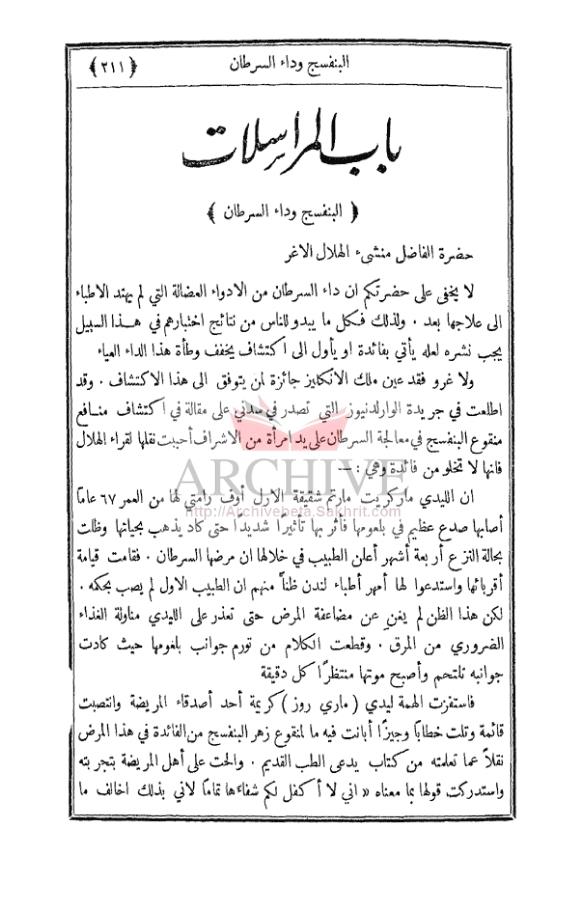 البنفسج وداء السرطان ﴿ ٢١١ ﴾
باب المراسلات
﴿ البنفسج وداء السرطان ﴾
حضرة الفاضل منشىء الهلال الاغر
لا يخفى على حضرتكم ان داء السرطان من الادواء العضالة التي لم يهتد الاطباء
الى علاجها بعد . ولذلك فكل ما يبدو للناس من نتائج اختبارهم في هـذا السبيل
يجب نشره لعله يأتي بفائدة او يأول الى اكتشاف يخفف وطأة هذا الداء العياء
ولا غرو فقد عين ملك الانكليز جائزة لمن يتوفق الى هذا الاكتشاف . وقد
اطلعت في جريدة الوارلدنيوز التي تصدر في سدني على مقالة في اكتشاف منـافع
منقوع البنفسج في معالجة السرطان على يد امرأة من الاشراف أحببت نقلها لقراء الهلال
فانها لا تخلو من فائدة وهي : —
ARCHIVE
http://Archivebeta.Sakhrit.com
ان الليدي ماركريت مارتم شقيقة الارل أوف رامتي لها من العمر ٦٧ عامًا
أصابها صدع عظيم في بلعومها فأثر بها تأثيرًا شديدًا حتى كاد يذهب بحياتها وظلت
بحالة النزع أربعة أشهر أعلن الطبيب في خلالها ان مرضها السرطان . فقامت قيامة
أقربائها واستدعوا لها أمهر أطباء لندن ظنًا منهم ان الطبيب الاول لم يصب بحكمه .
لكن هذا الظن لم يغن عن مضاعفة المرض حتى تعذر على الليدي مناولة الغذاء
الضروري من المرق . وقطعت الكلام من تورم جوانب بلغومها حيث كادت
جوانبه تلتحم وأصبح موتها منتظرًا كل دقيقة
فاستفزت الهمة ليدي ( ماري روز ) كريمة أحد أصدقاء المريضة وانتصبت
قائمة وتلت خطابًا وجيزًا أبانت فيه ما لمنقوع زهر البنفسج من الفائدة في هذا المرض
نقلاً عما تعلمته من كتاب يدعى الطب القديم . والحت على أهل المريضة بتجربته
واستدركت قولها بما معناه « اني لا أكفل لكم شفاءها تمامًا لاني بذلك اخالف ما